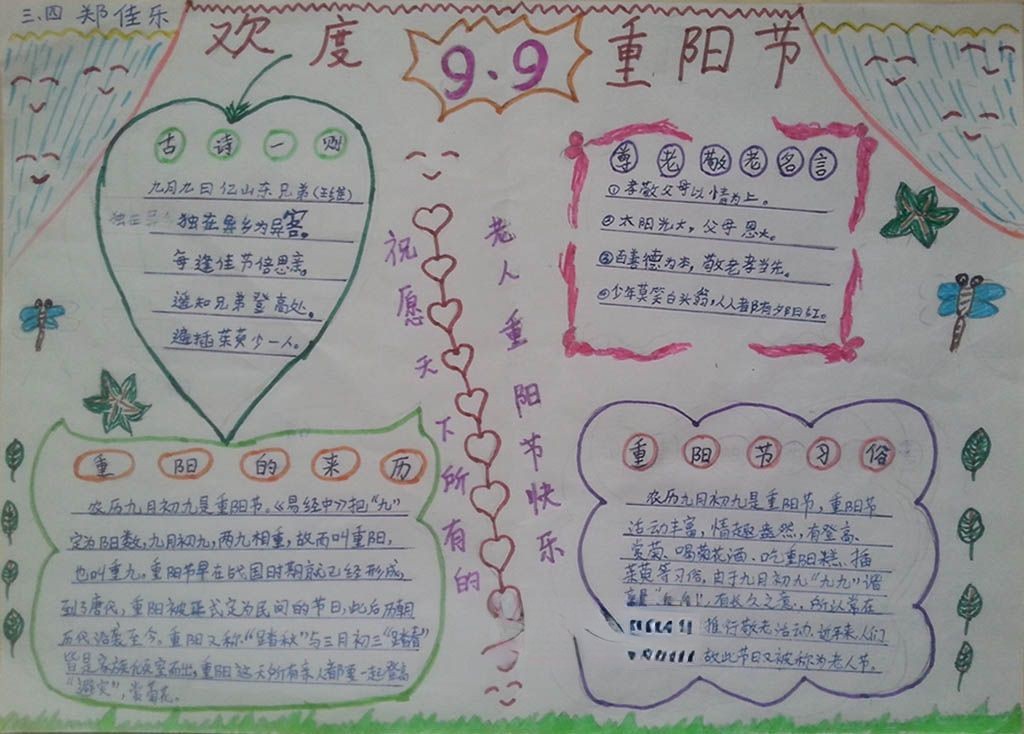 三、四 郑佳乐
欢度 9.9 重阳节
古诗一则
九月九日忆山东兄弟（王维）
独在异乡为异客。
每逢佳节倍思亲。
遥知兄弟登高处。
遍插茱萸少一人。
尊老敬老名言
①孝敬父母以情为上。
②太阳光大，父母恩大。
③百善德为本，敬老孝当先。
④少年莫笑白头翁，人人都有夕阳红。
祝愿天下所有的
老人重阳节快乐
重阳的来历
农历九月初九是重阳节。《易经中》把“九”
定为阳数，九月初九，两九相重，故而叫重阳，
也叫重九，重阳节早在战国时期就已经形成，
到了唐代，重阳被正式定为民间的节日，此后历朝
历代沿袭至今。重阳又称“踏秋”与三月初三“踏春”
皆是家族倾室而出，重阳这天所有亲人都要一起登高
“避灾”，赏菊花。
重阳节习俗
农历九月初九是重阳节，重阳节
活动丰富，情趣盎然，有登高、
赏菊、喝菊花酒、吃重阳糕、插
茱萸等习俗，由于九月初九“九九”谐
有长久之意，所以常在
推行敬老活动。近年来人们
故此节日又被称为老人节。